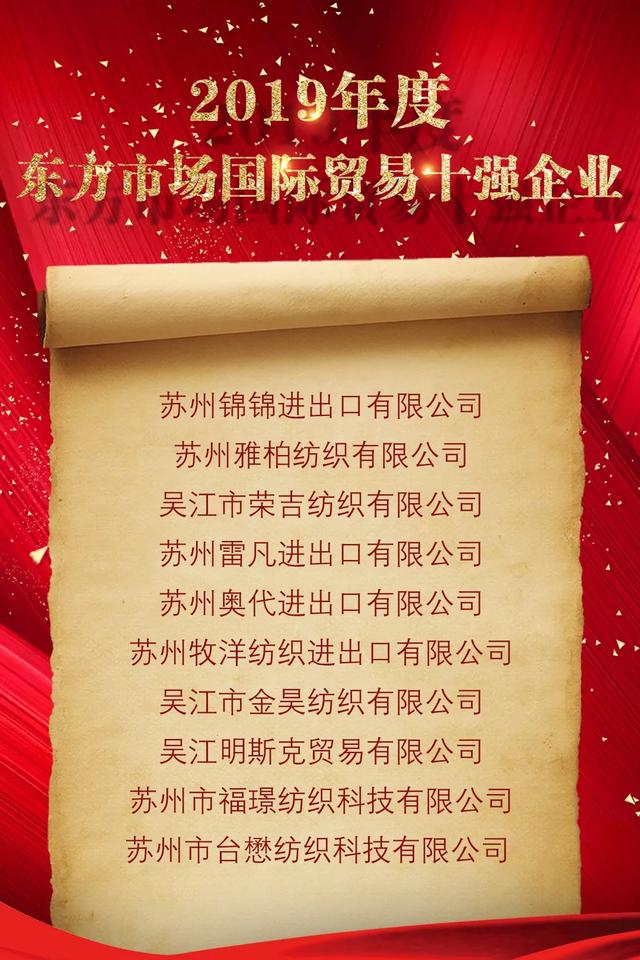 2019年度
东方市场国际贸易十强企业
苏州锦锦进出口有限公司
苏州雅柏纺织有限公司
吴江市荣吉纺织有限公司
苏州雷凡进出口有限公司
苏州奥代进出口有限公司
苏州牧洋纺织进出口有限公司
吴江市金昊纺织有限公司
吴江明斯克贸易有限公司
苏州市福璟纺织科技有限公司
苏州市台懋纺织科技有限公司